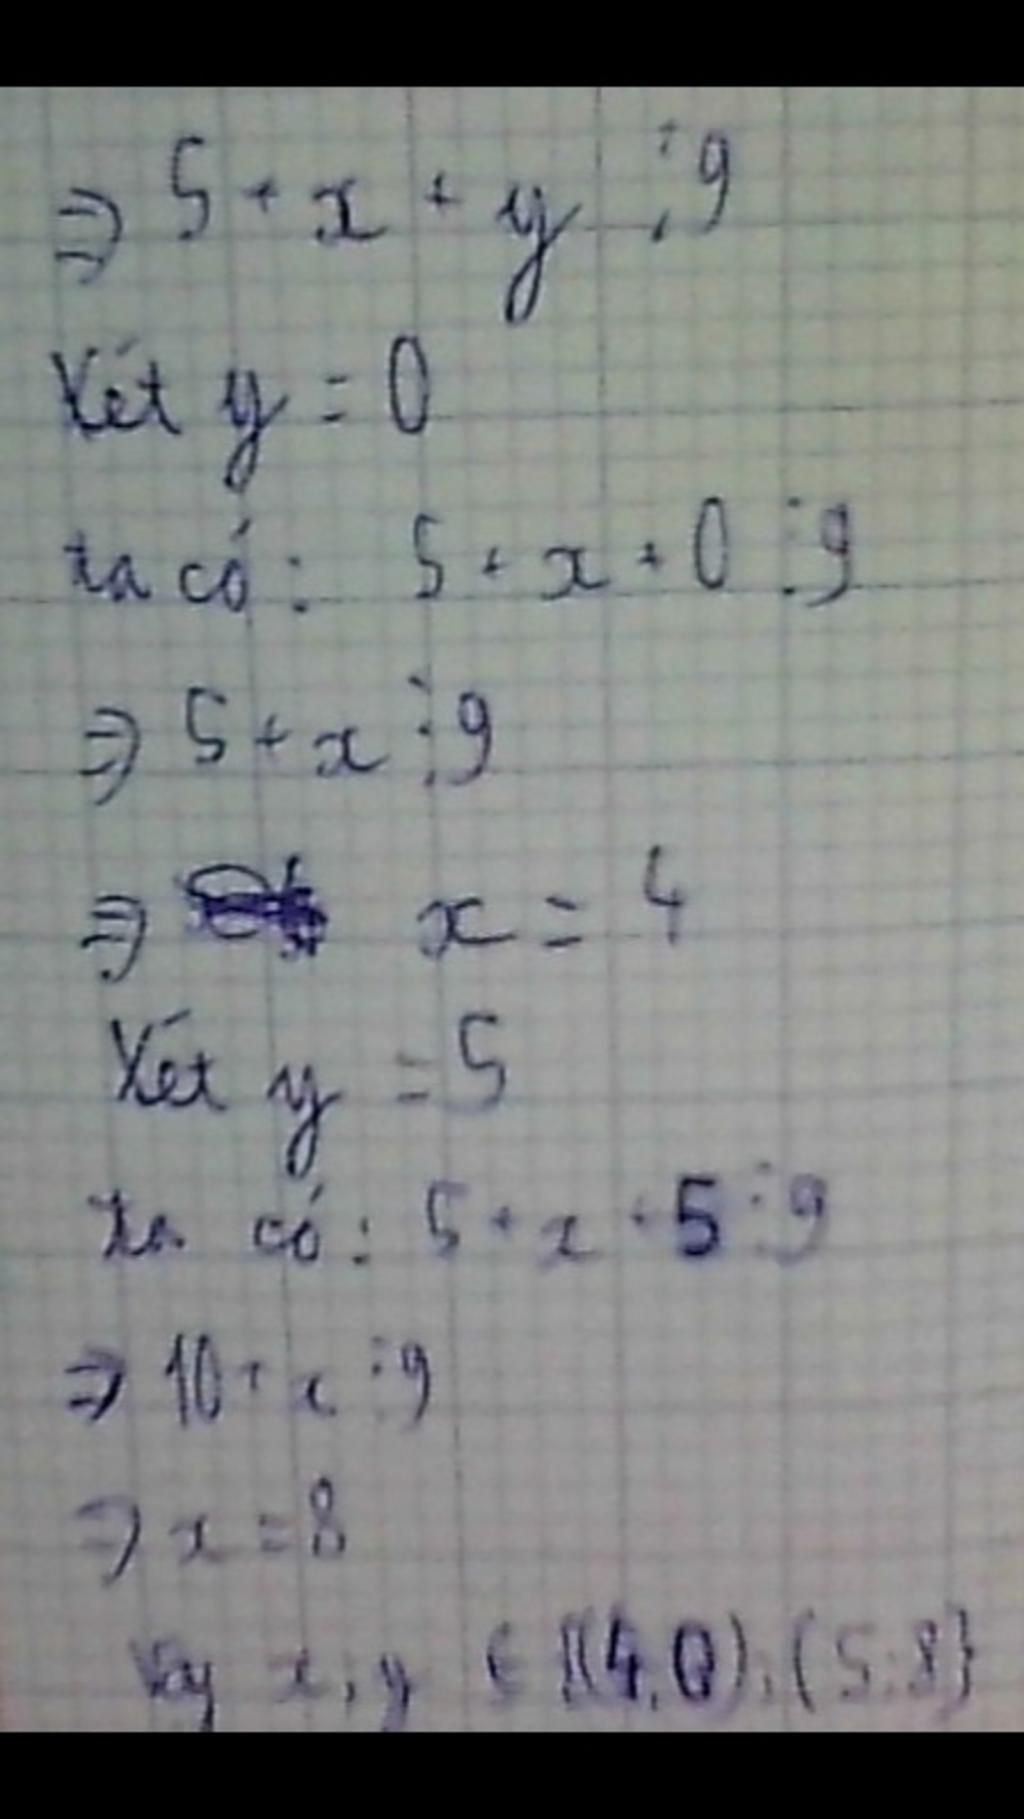 ⇒ 5 + x + y ⋮ 9
Xét y = 0
ta có: 5 + x + 0 ⋮ 9
⇒ 5 + x ⋮ 9
⇒ x = 4
Xét y = 5
ta có: 5 + x + 5 ⋮ 9
⇒ 10 + x ⋮ 9
⇒ x = 8
Vậy x; y ∈ {(4; 0); (5; 8}